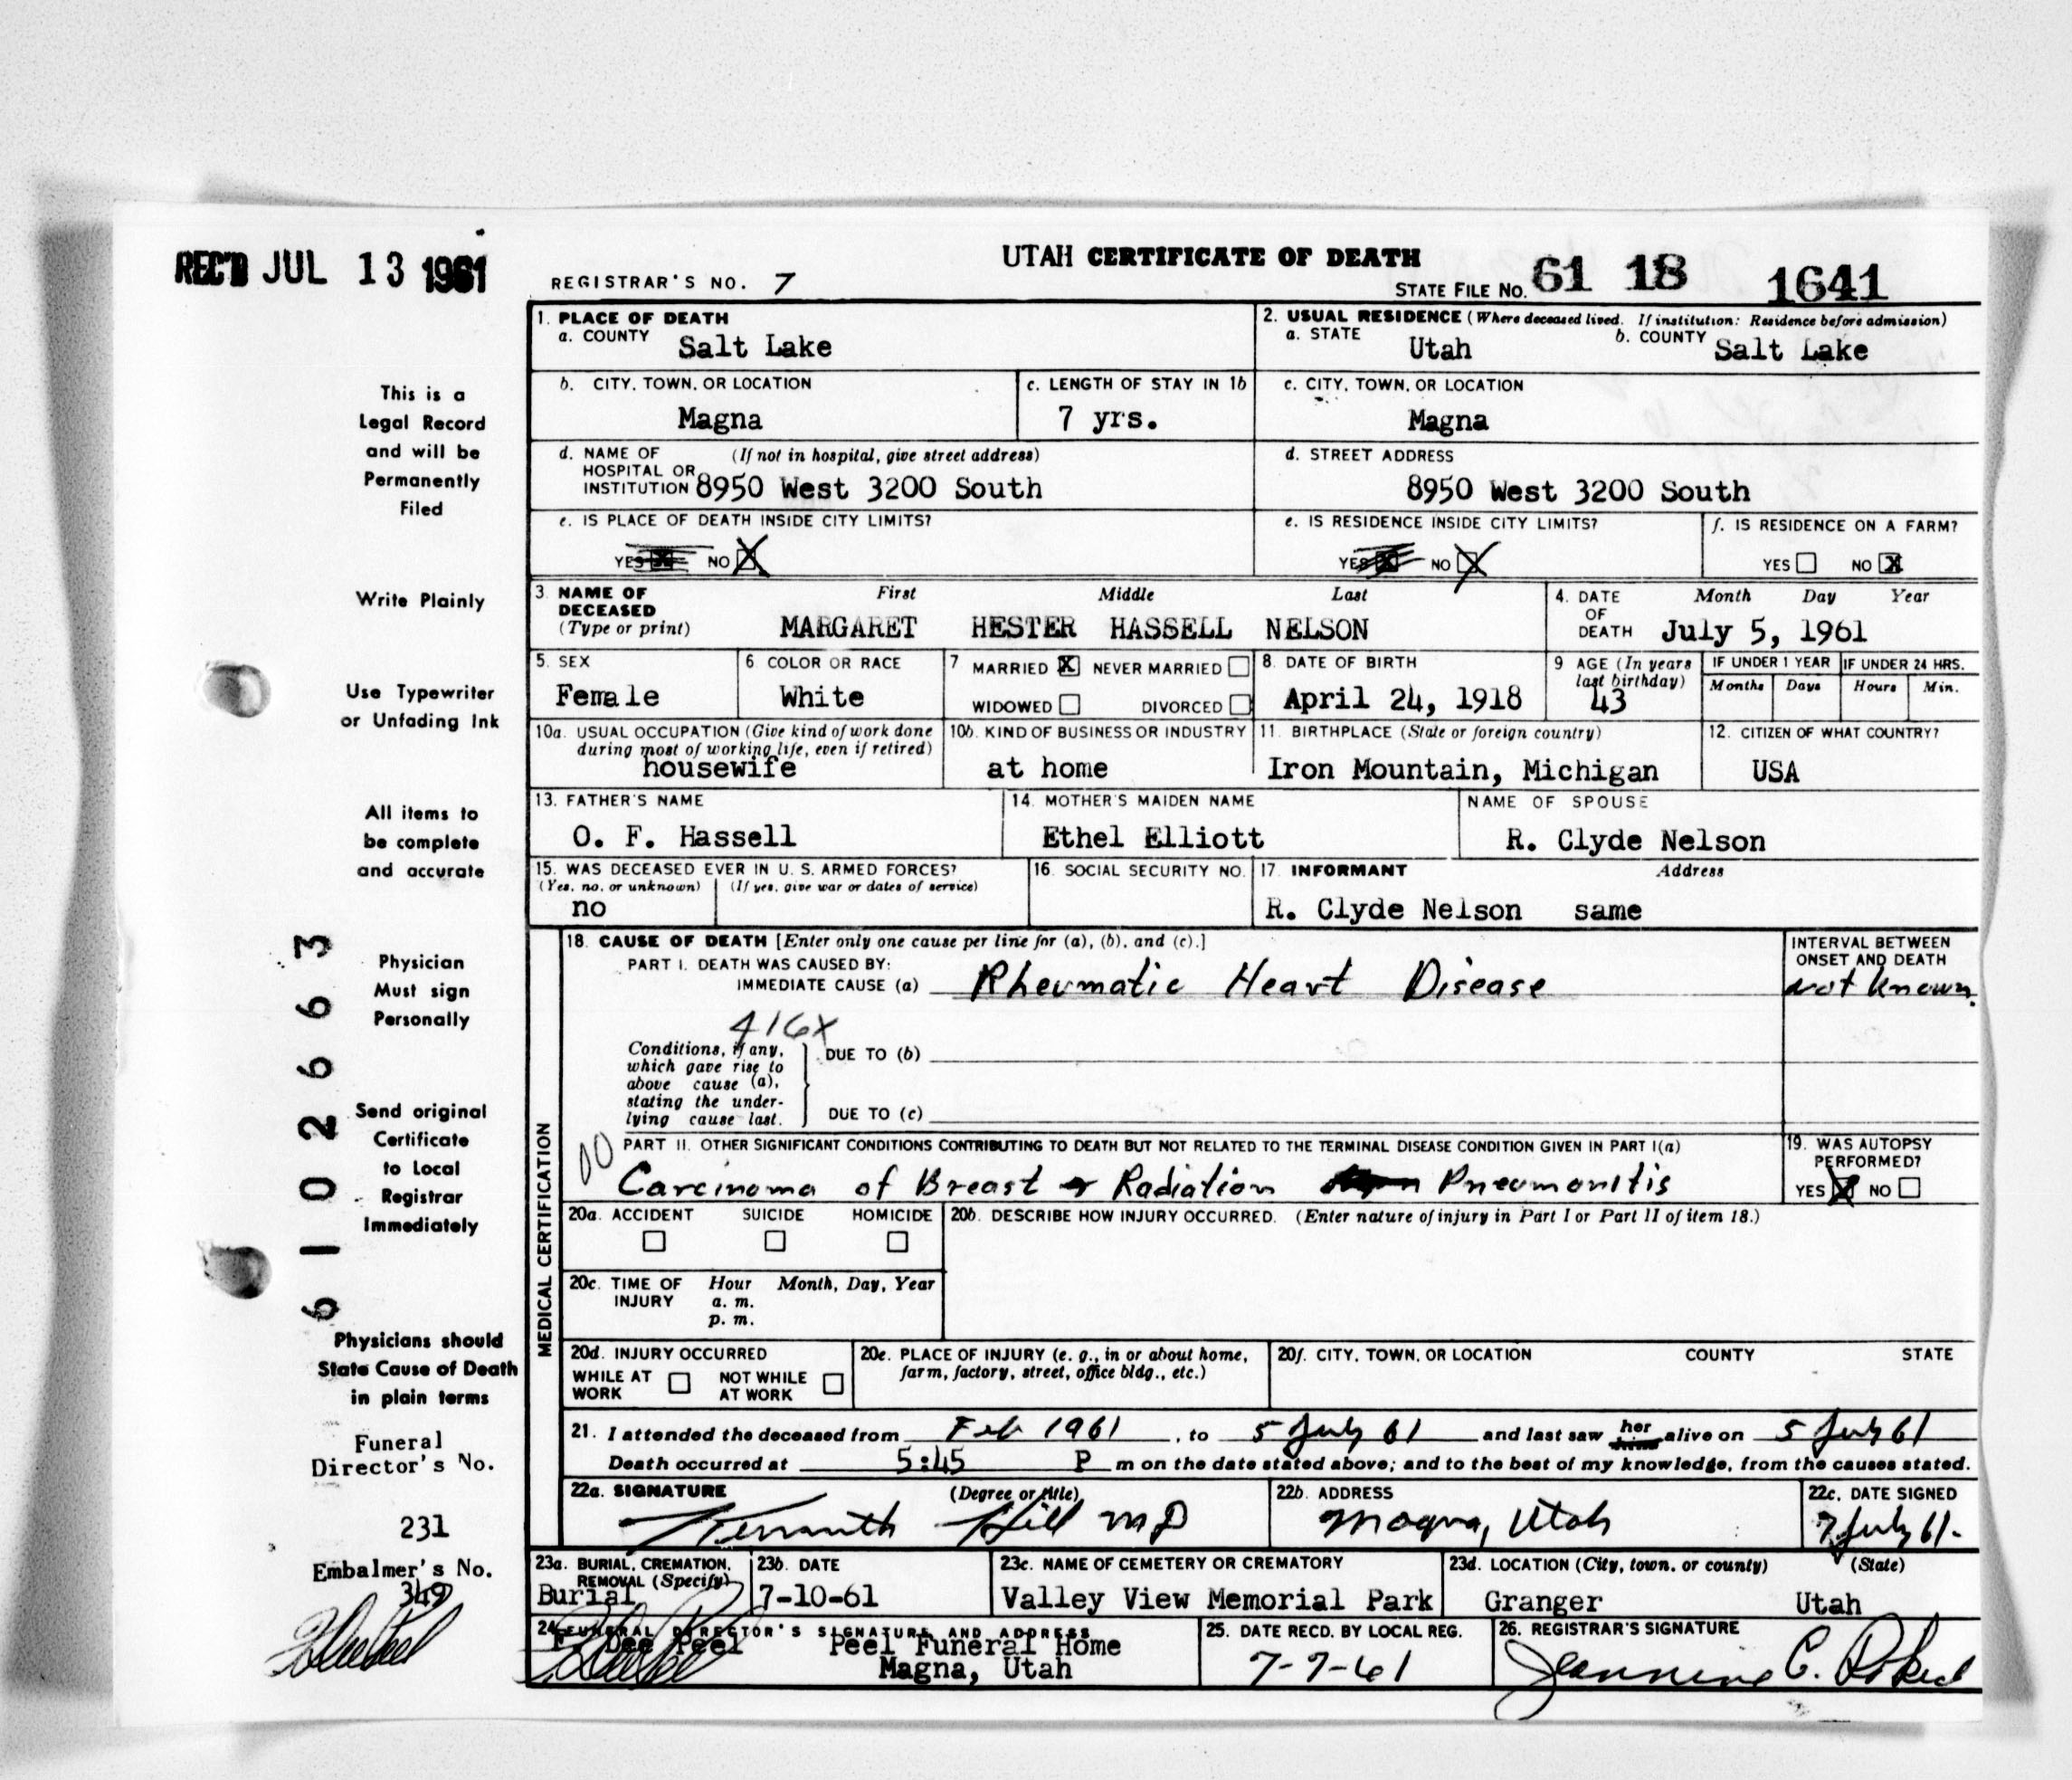 REC'D JUL 13 1961
UTAH CERTIFICATE OF DEATH
REGISTRAR'S NO. 7
STATE FILE NO. 61 18 1641
This is a
Legal Record
and will be
Permanently
Filed
Write Plainly
Use Typewriter
or Unfading Ink
All items to
be complete
and accurate
Physician
Must sign
Personally
Send original
Certificate
to Local
Registrar
Immediately
Physicians should
State Cause of Death
in plain terms
Funeral
Director's No.
231
Embalmer's No.
349
6102663
1. PLACE OF DEATH
a. COUNTY Salt Lake
2. USUAL RESIDENCE (Where deceased lived. If institution: Residence before admission)
a. STATE Utah b. COUNTY Salt Lake
b. CITY, TOWN, OR LOCATION
Magna
c. LENGTH OF STAY IN 1b
7 yrs.
c. CITY, TOWN, OR LOCATION
Magna
d. NAME OF (If not in hospital, give street address)
HOSPITAL OR
INSTITUTION 8950 West 3200 South
d. STREET ADDRESS
8950 West 3200 South
e. IS PLACE OF DEATH INSIDE CITY LIMITS?
YES NO X
e. IS RESIDENCE INSIDE CITY LIMITS?
YES NO X
f. IS RESIDENCE ON A FARM?
YES NO X
3. NAME OF DECEASED (Type or print)
First Middle Last
MARGARET HESTER HASSELL NELSON
4. DATE OF DEATH Month Day Year
July 5, 1961
5. SEX
Female
6. COLOR OR RACE
White
7 MARRIED X NEVER MARRIED
WIDOWED DIVORCED
8. DATE OF BIRTH
April 24, 1918
9 AGE (In years last birthday)
43
IF UNDER 1 YEAR IF UNDER 24 HRS.
Months Days Hours Min.
10a. USUAL OCCUPATION (Give kind of work done
during most of working life, even if retired)
housewife
10b. KIND OF BUSINESS OR INDUSTRY
at home
11. BIRTHPLACE (State or foreign country)
Iron Mountain, Michigan
12. CITIZEN OF WHAT COUNTRY?
USA
13. FATHER'S NAME
O. F. Hassell
14. MOTHER'S MAIDEN NAME
Ethel Elliott
NAME OF SPOUSE
R. Clyde Nelson
15. WAS DECEASED EVER IN U. S. ARMED FORCES?
(Yes, no, or unknown) (If yes, give war or dates of service)
no
16. SOCIAL SECURITY NO.
17. INFORMANT Address
R. Clyde Nelson same
MEDICAL CERTIFICATION
18. CAUSE OF DEATH [Enter only one cause per line for (a), (b), and (c).]
PART I. DEATH WAS CAUSED BY:
IMMEDIATE CAUSE (a) Rheumatic Heart Disease
INTERVAL BETWEEN
ONSET AND DEATH
not known.
416X
Conditions, if any,
which gave rise to
above cause (a),
stating the under-
lying cause last.
DUE TO (b)
DUE TO (c)
PART II. OTHER SIGNIFICANT CONDITIONS CONTRIBUTING TO DEATH BUT NOT RELATED TO THE TERMINAL DISEASE CONDITION GIVEN IN PART I(a)
Carcinoma of Breast & Radiation Pneumonitis
19. WAS AUTOPSY
PERFORMED?
YES X NO
20a. ACCIDENT SUICIDE HOMICIDE
20b. DESCRIBE HOW INJURY OCCURRED. (Enter nature of injury in Part I or Part II of item 18.)
20c. TIME OF INJURY Hour Month, Day, Year
a. m.
p. m.
20d. INJURY OCCURRED
WHILE AT WORK NOT WHILE AT WORK
20e. PLACE OF INJURY (e. g., in or about home,
farm, factory, street, office bldg., etc.)
20f. CITY, TOWN, OR LOCATION COUNTY STATE
21. I attended the deceased from Feb 1961, to 5 July 61 and last saw her alive on 5 July 61
Death occurred at 5:45 P m on the date stated above; and to the best of my knowledge, from the causes stated.
22a. SIGNATURE (Degree or title)
Kenneth Hill MD
22b. ADDRESS
Magna, Utah
22c. DATE SIGNED
7 July 61.
23a. BURIAL, CREMATION,
REMOVAL (Specify)
Burial
23b. DATE
7-10-61
23c. NAME OF CEMETERY OR CREMATORY
Valley View Memorial Park
23d. LOCATION (City, town, or county) (State)
Granger Utah
24. FUNERAL DIRECTOR'S SIGNATURE AND ADDRESS
Dee Peel Peel Funeral Home
Magna, Utah
25. DATE RECD. BY LOCAL REG.
7-7-61
26. REGISTRAR'S SIGNATURE
Jeannine C.